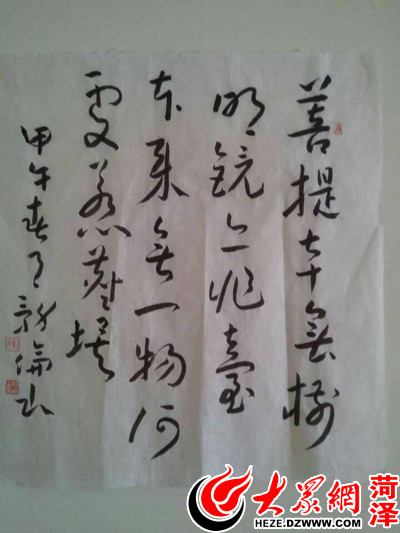 菩提本無樹
明鏡亦非臺
本來無一物何
處惹塵埃
甲午春月
大眾網
菏泽
HEZE.DZWWW.COM